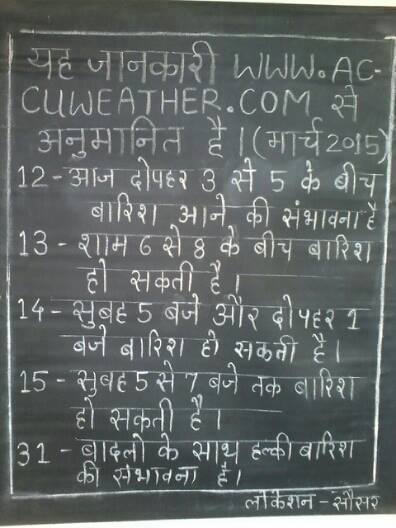 यह जानकारी WWW.AC-
CUWEATHER.COM से
अनुमानित है।(मार्च 2015)
12-आज दोपहर 3 से 5 के बीच
बारिश आने की संभावना है
13 - शाम 6 से 8 के बीच बारिश
हो सकती है।
14 - सुबह 5 बजे और दोपहर 1
बजे बारिश हो सकती है।
15 - सुबह 5 से 7 बजे तक बारिश
हो सकती है।
31 - बादलो के साथ हल्की बारिश
की संभावना है।
लोकेशन - सौसर